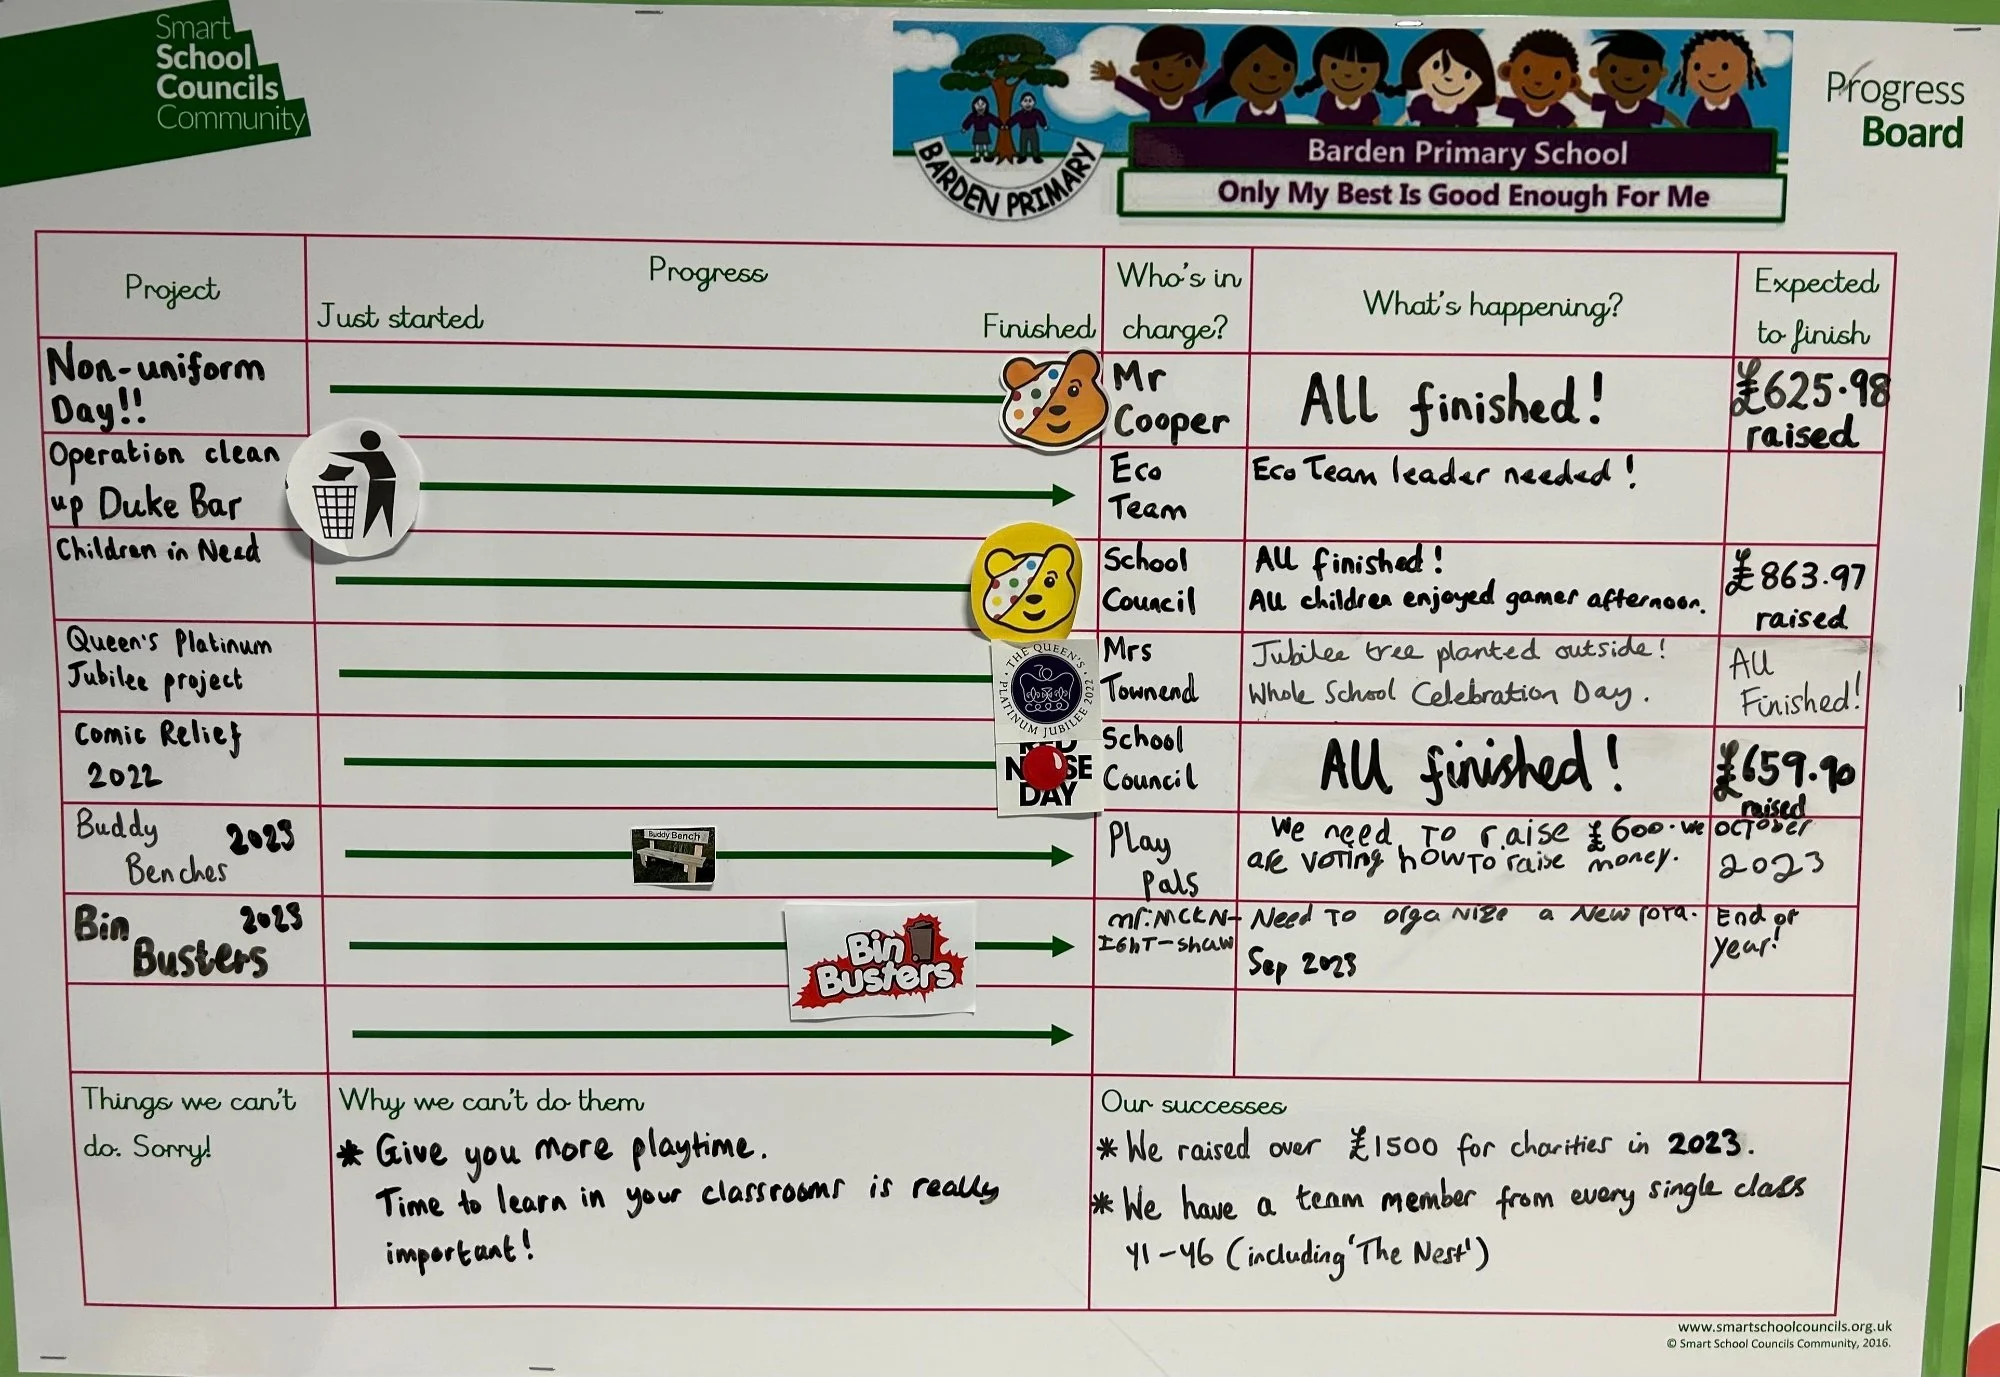 Smart
School
Councils
Community
BARDEN PRIMARY
Barden Primary School
Only My Best Is Good Enough For Me
Progress
Board
Project
Progress
Just started
Finished
Who's in
charge?
What's happening?
Expected
to finish
Non-uniform
Day!!
Mr
Cooper
ALL finished!
£625.98
raised
Operation clean
up Duke Bar
Eco
Team
Eco Team leader needed!
Children in Need
School
Council
All finished!
All children enjoyed gamer afternoon.
£863.97
raised
Queen's Platinum
Jubilee project
THE QUEEN'S PLATINUM JUBILEE 2022
70
Mrs
Townend
Jubilee tree planted outside!
Whole School Celebration Day.
All
Finished!
Comic Relief
2022
RED
NOSE
DAY
School
Council
All finished!
£659.90
raised
Buddy 2023
Benches
Buddy Bench
Play
Pals
We need To raise £600. we
are voting how To raise money.
october
2023
Bin 2023
Busters
Bin
Busters
mr.mckn-
ight-shaw
Need To organize a new rota.
Sep 2023
End of
year!
Things we can't
do. Sorry!
Why we can't do them
* Give you more playtime.
Time to learn in your classrooms is really
important!
Our successes
* We raised over £1500 for charities in 2023.
* We have a team member from every single class
Y1-Y6 (including 'The Nest')
www.smartschoolcouncils.org.uk
© Smart School Councils Community, 2016.